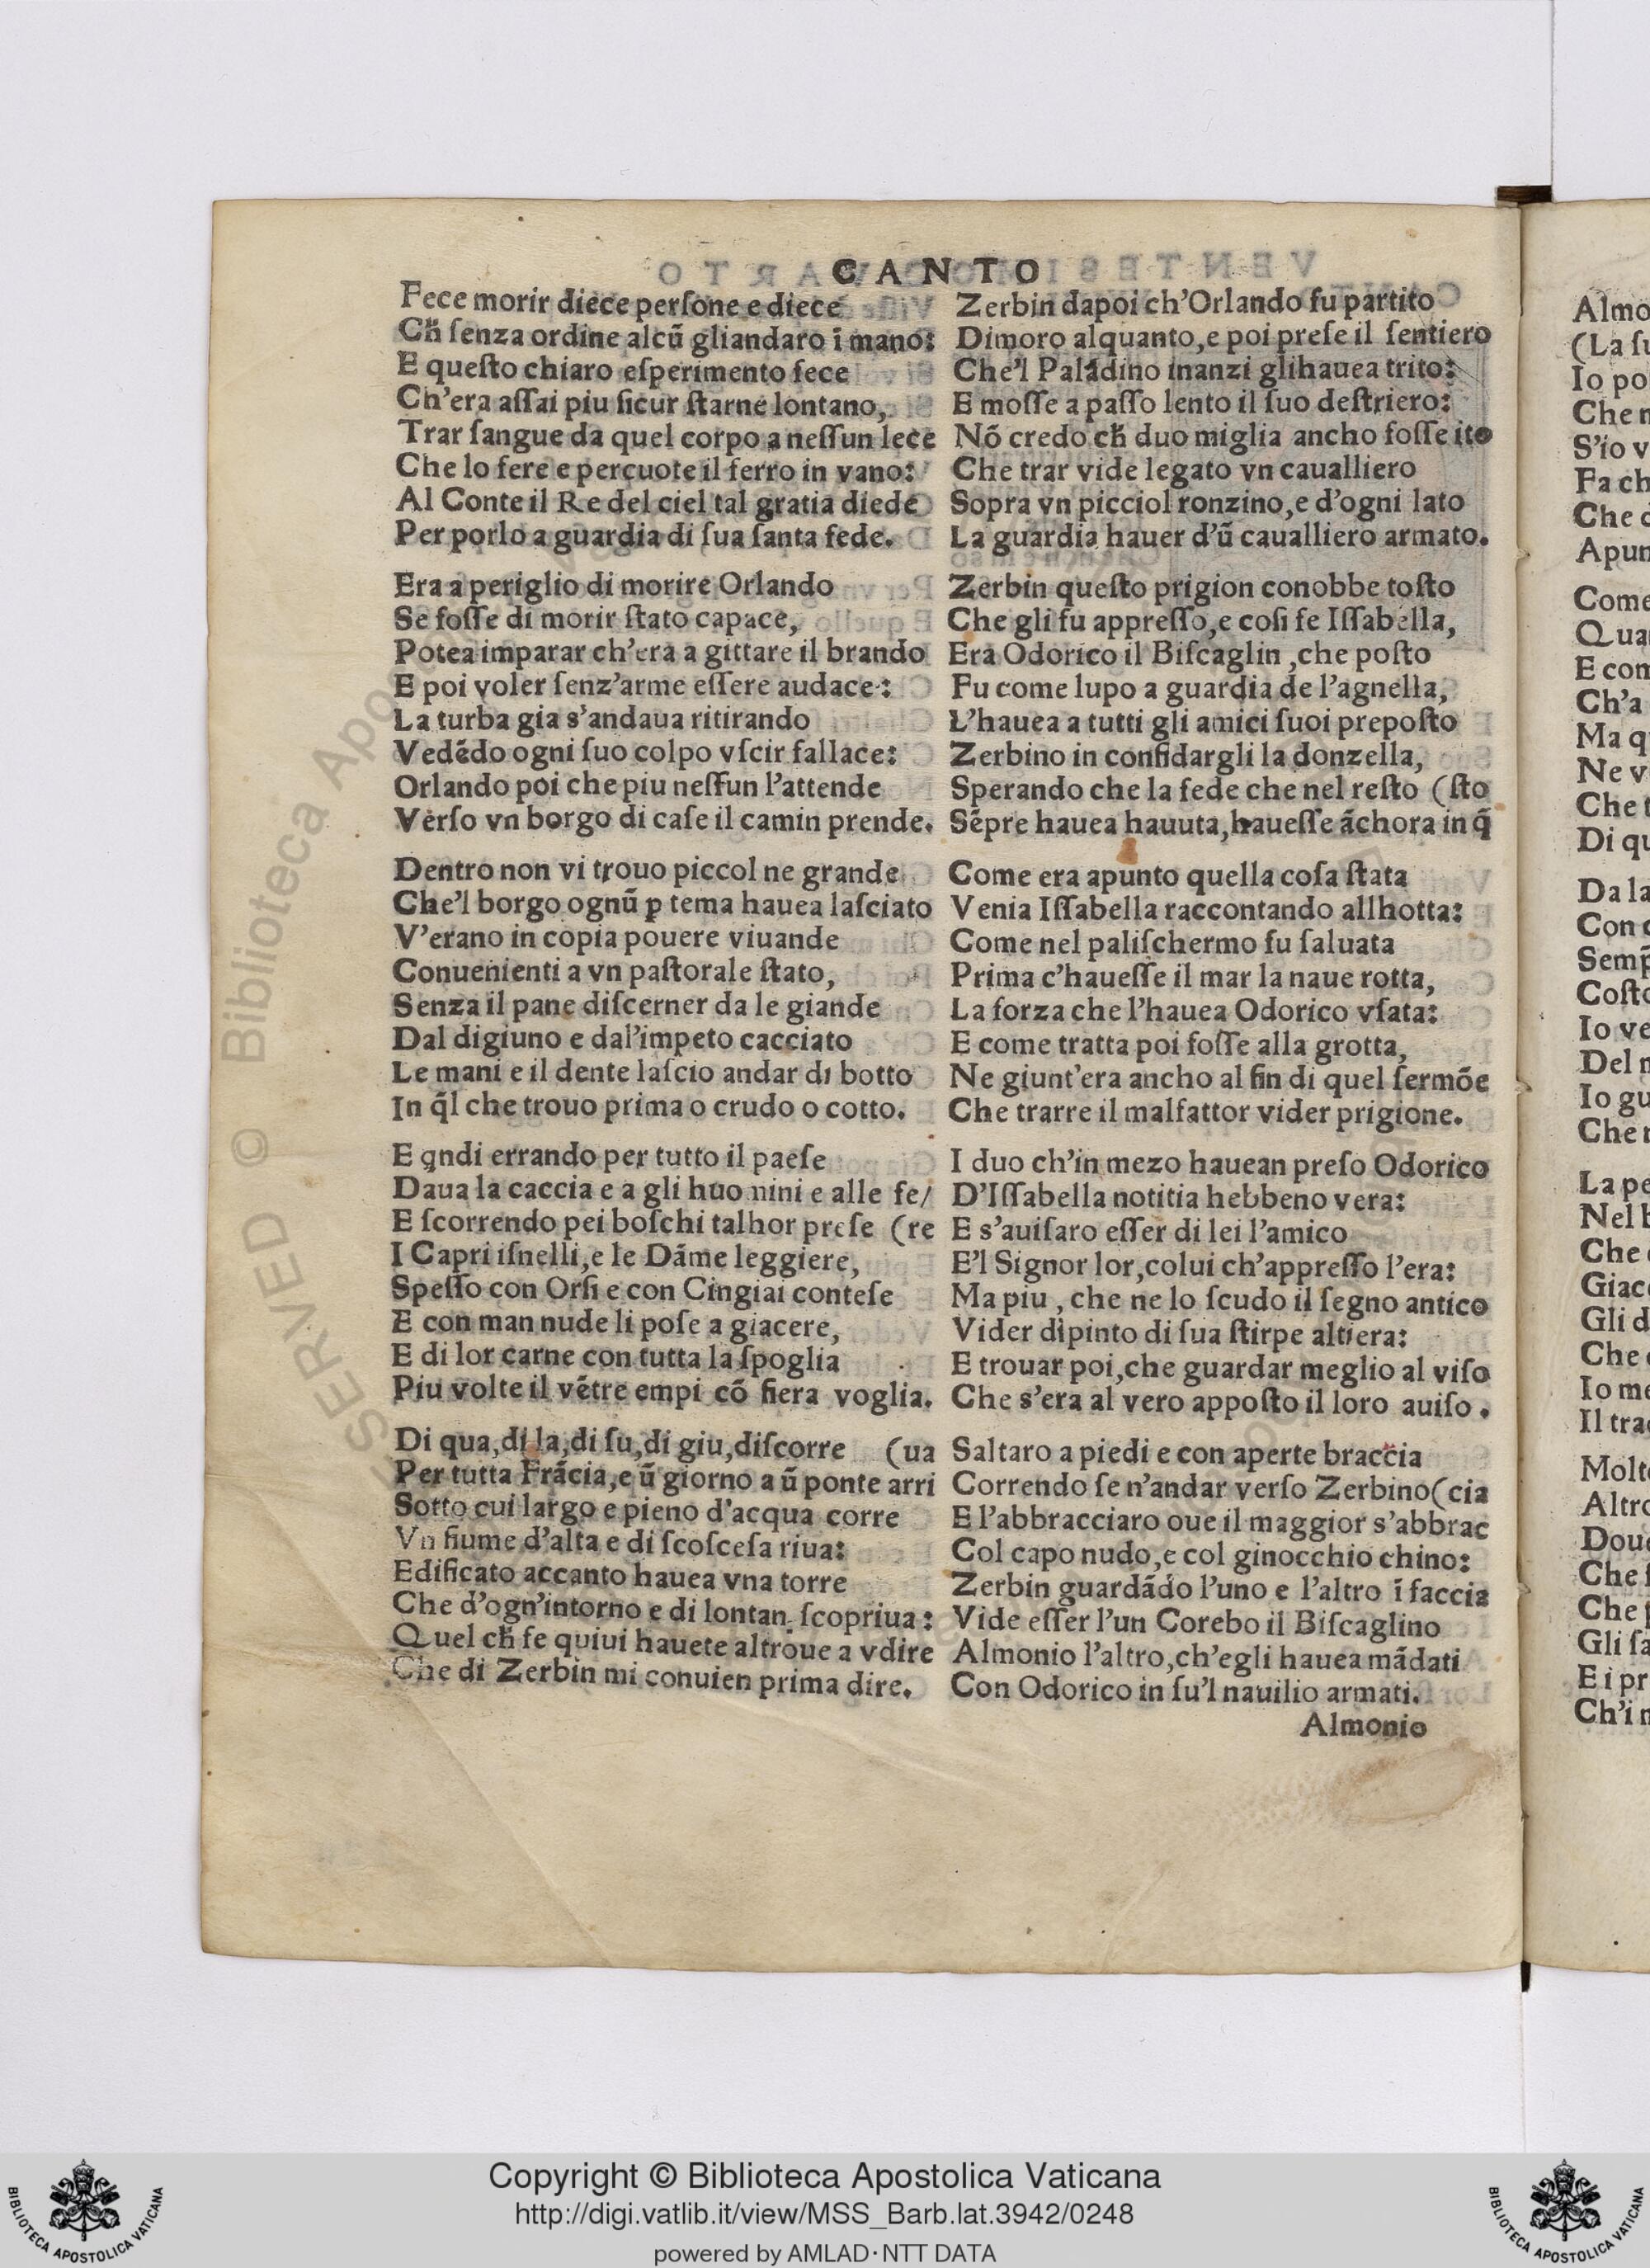 CANTO
Fece morir diece perſone e diece
Ch̃ ſenza ordine alcũ gliandaro ĩ mano:
E queſto chiaro eſperimento fece
Ch'era aſſai piu ſicur ſtarne lontano,
Trar ſangue da quel corpo a neſſun lece
Che lo fere e percuote il ferro in vano:
Al Conte il Re del ciel tal gratia diede
Per porlo a guardia di ſua ſanta fede.
Era a periglio di morire Orlando
Se foſſe di morir ſtato capace,
Potea imparar ch'era a gittare il brando
E poi voler ſenz'arme eſſere audace:
La turba gia s'andaua ritirando
Vedẽdo ogni ſuo colpo vſcir fallace:
Orlando poi che piu neſſun l'attende
Verſo vn borgo di caſe il camin prende.
Dentro non vi trouo piccol ne grande
Che'l borgo ognũ ꝑ tema hauea laſciato
V'erano in copia pouere viuande
Conuenienti a vn paſtorale ſtato,
Senza il pane diſcerner da le giande
Dal digiuno e dal'impeto cacciato
Le mani e il dente laſcio andar di botto
In q̃l che trouo prima o crudo o cotto.
E qndi errando per tutto il paeſe
Daua la caccia e a gli huomini e alle fe/
E ſcorrendo pei boſchi talhor preſe (re
I Capri iſnelli,e le Dãme leggiere,
Speſſo con Orſi e con Cingiai conteſe
E con man nude li poſe a giacere,
E di lor carne con tutta la ſpoglia
Piu volte il vẽtre empi cõ fiera voglia.
Di qua,di la,di ſu,di giu,diſcorre (ua
Per tutta Frãcia,e ũ giorno a ũ ponte arri
Sotto cui largo e pieno d'acqua corre
Vn fiume d'alta e di ſcoſceſa riua:
Edificato accanto hauea vna torre
Che d'ogn'intorno e di lontan ſcopriua:
Quel ch̃ fe quiui hauete altroue a vdire
Che di Zerbin mi conuien prima dire.
Zerbin dapoi ch'Orlando fu partito
Dimoro alquanto,e poi preſe il ſentiero
Che'l Paladino inanzi glihauea trito:
E moſſe a paſſo lento il ſuo deſtriero:
Nõ credo ch̃ duo miglia ancho foſſe ito
Che trar vide legato vn caualliero
Sopra vn picciol ronzino,e d'ogni lato
La guardia hauer d'ũ caualliero armato.
Zerbin queſto prigion conobbe toſto
Che gli fu appreſſo,e coſi fe Iſſabella,
Era Odorico il Biſcaglin ,che poſto
Fu come lupo a guardia de l'agnella,
L'hauea a tutti gli amici ſuoi prepoſto
Zerbino in confidargli la donzella,
Sperando che la fede che nel reſto (ſto
Sẽpre hauea hauuta,haueſſe ãchora in q̃
Come era apunto quella coſa ſtata
Venia Iſſabella raccontando allhotta:
Come nel paliſchermo fu ſaluata
Prima c'haueſſe il mar la naue rotta,
La forza che l'hauea Odorico vſata:
E come tratta poi foſſe alla grotta,
Ne giunt'era ancho al fin di quel ſermõe
Che trarre il malfattor vider prigione.
I duo ch'in mezo hauean preſo Odorico
D'Iſſabella notitia hebbeno vera:
E s'auiſaro eſſer di lei l'amico
E'l Signor lor,colui ch'appreſſo l'era:
Ma piu , che ne lo ſcudo il ſegno antico
Vider dipinto di ſua ſtirpe altiera:
E trouar poi,che guardar meglio al viſo
Che s'era al vero appoſto il loro auiſo.
Saltaro a piedi e con aperte braccia
Correndo ſe n'andar verſo Zerbino(cia
E l'abbracciaro oue il maggior s'abbrac
Col capo nudo,e col ginocchio chino:
Zerbin guardãdo l'uno e l'altro ĩ faccia
Vide eſſer l'un Corebo il Biſcaglino
Almonio l'altro,ch'egli hauea mãdati
Con Odorico in ſu'l nauilio armati.
Almonio
Almo
(La ſu
Io po
Che n
S'io v
Fa ch
Che c
Apun
Come
Qua
E com
Ch'a
Ma q
Ne v
Che t
Di qu
Da la
Con c
Semp̃
Coſto
Io ve
Del n
Io gu
Che n
La pe
Nel b
Che
Giac
Gli d
Che
Io me
Il tra
Molt
Altro
Dou
Che ſ
Che
Gli ſa
E i pr
Ch'i n
SERVED © Biblioteca Apos
Copyright © Biblioteca Apostolica Vaticana
http://digi.vatlib.it/view/MSS_Barb.lat.3942/0248
powered by AMLAD·NTT DATA
BIBLIOTECA APOSTOLICA VATICANA
BIBLIOTECA APOSTOLICA VATICANA